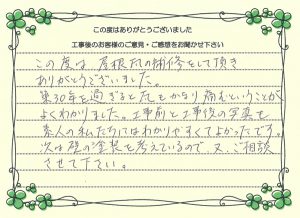 この度はありがとうございました
工事後のお客様のご意見・ご感想をお聞かせ下さい
この度は、屋根瓦の補修をして頂き
ありがとうございました。
築30年を過ぎると瓦もかなり痛むということが
よくわかりました。工事前と工事後の写真も
素人の私たちにはわかりやすくてよかったです。
次は壁の塗装を考えているので、又、ご相談
させて下さい。